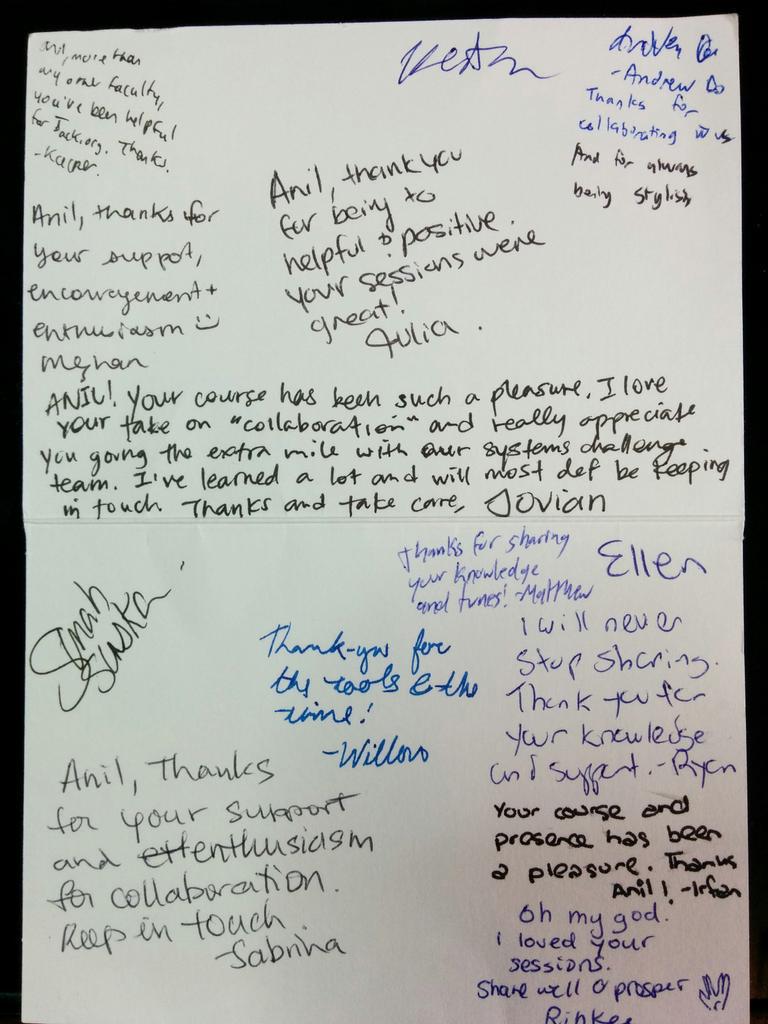 Anil, more than
any other faculty,
you've been helpful
for Jack.org. Thanks.
-Kacper.
-Andrew Do
Thanks for
collaborating w us
And for always
being stylish
Anil, thank you
for being so
helpful & positive.
your sessions were
great!
Julia.
Anil, thanks for
your support,
encouragement +
enthusiasm
Meghan
ANIL! Your course has been such a pleasure. I love
your take on "collaboration" and really appreciate
you going the extra mile with our systems challenge
team. I've learned a lot and will most def be keeping
in touch. Thanks and take care, Jovian
thanks for sharing
your knowledge
and tunes! -Matthew
Ellen
Thank-you for
the tools & the
time!
-Willow
I will never
stop sharing.
Thank you for
your knowledge
and support. -Ryan
Anil, Thanks
for your support
and enthusiasm
for collaboration.
Keep in touch.
-Sabrina
Your course and
presence has been
a pleasure. Thanks
Anil! -Irfan
Oh my god.
I loved your
sessions.
Share well & prosper
Rinkee